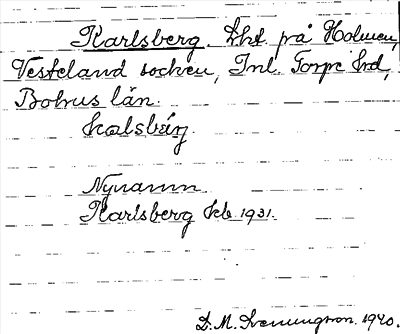 Karlsberg. Lht på Holmen,
Vesteland socken, Inl. Torpe hd,
Bohus län.
kalsbärg.
Nynamn.
Karlsberg kb. 1931.
D. M. Svenungson. 1940.